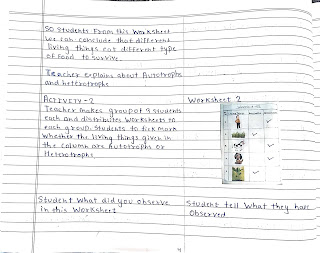 So Students From this Worksheet
We can conclude that different
living things eat different type
of food to survive.
Teacher explains about Autotrophs
and heterotrophs
ACTIVITY-2
Teacher makes group of 9 students
each and distributes worksheets to
each group. Students to tick mark
whether the living things given in
the column are Autotrophs or
Heterotrophs.
Worksheet 2
Student what did you observe
in this worksheet
Student tell what they have
Observed